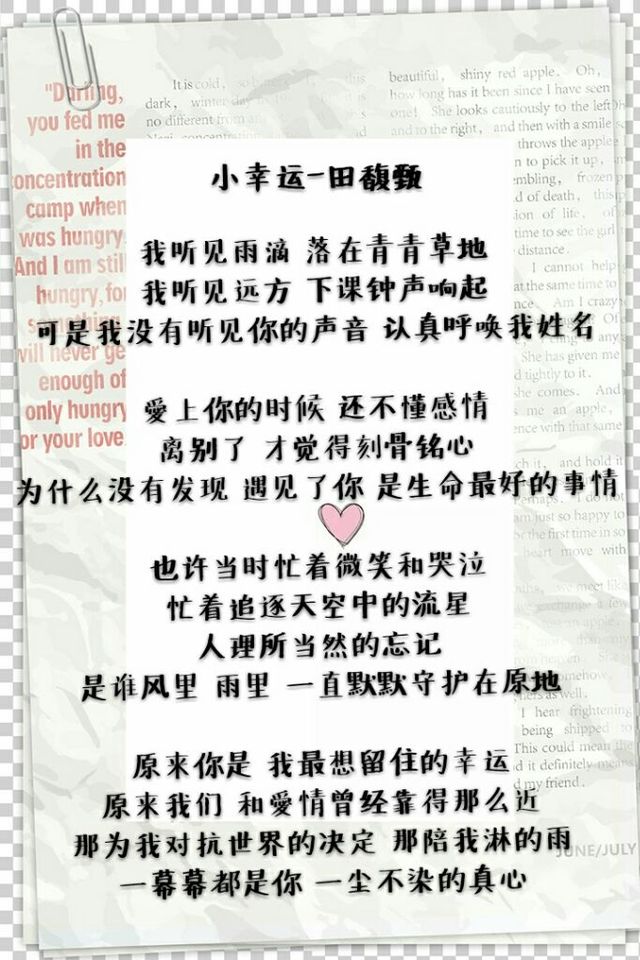 小幸运-田馥甄
我听见雨滴 落在青青草地
我听见远方 下课钟声响起
可是我没有听见你的声音 认真呼唤我姓名
愛上你的时候 还不懂感情
离别了 才觉得刻骨铭心
为什么没有发现 遇见了你 是生命最好的事情
也许当时忙着微笑和哭泣
忙着追逐天空中的流星
人理所当然的忘记
是谁风里 雨里 一直默默守护在原地
原来你是 我最想留住的幸运
原来我们 和愛情曾经靠得那么近
那为我对抗世界的决定 那陪我淋的雨
一幕幕都是你 一尘不染的真心
"Darling,
you fed me
in the
oncentration
camp when
was hungry
And I am still
hungry, for
something
will never ge
enough of
only hungry
or your love
It is cold,
dark, winter day
no different from
beautiful, shiny red apple. Oh,
how long has it been since I have seen
one! She looks cautiously to the left
and to the right, and then with a smile
throws the apple
n to pick it up,
embling, frozen
d of death, this
ion of life, of
time to see the girl
distance.
I cannot help
at the same time to
Am I crazy
She has given me
tightly to it.
she comes. And
me an apple,
ence with that same
ch it, and hold it
am just so happy to
be the first time in so
heart move with
we meet like
exchange a few
somehow
hers as well.
I hear frightening
being shipped to
This could mean the
d it definitely means
d my friend.
JUNE/JULY